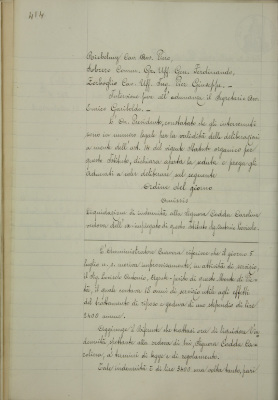 484
Cav. Avv. Pino,
Comm. Gr. Uff. Ferdinando,
Cav. Uff. Ing. Pier Giuseppe. -
Interviene pure all'adunanza il Segretario Avv.
Enrico Garibaldi. -
Il Sr. Presidente, constatato che gli intervenuti
sono in numero legale per la validità delle deliberazioni
a mente dell'art. 14 del vigente Statuto organico per
questo Istituto, dichiara aperta la seduta e prega gli
adunati a voler deliberare sul seguente
Ordine del giorno
Omissis
Liquidazione di indennità alla Signora Cadda Carolina
vedova dell'ex impiegato di questo Istituto Sig.
L'Amministratore riferisce che il giorno 5
luglio u. s. moriva improvvisamente, in attività di servizio,
il Sig.
il quale contava 11 anni di servizio utile agli effetti
del trattamento di riposo e godeva di uno stipendio di lire
2400 annue.
Soggiunge il riferente che trattasi ora di liquidare l'in-
dennità spettante alla vedova di lui Signora Cadda Ca-
rolina, ai termini di legge e di regolamento.
Tale indennità è di lire 2400 una volta tanto, pari